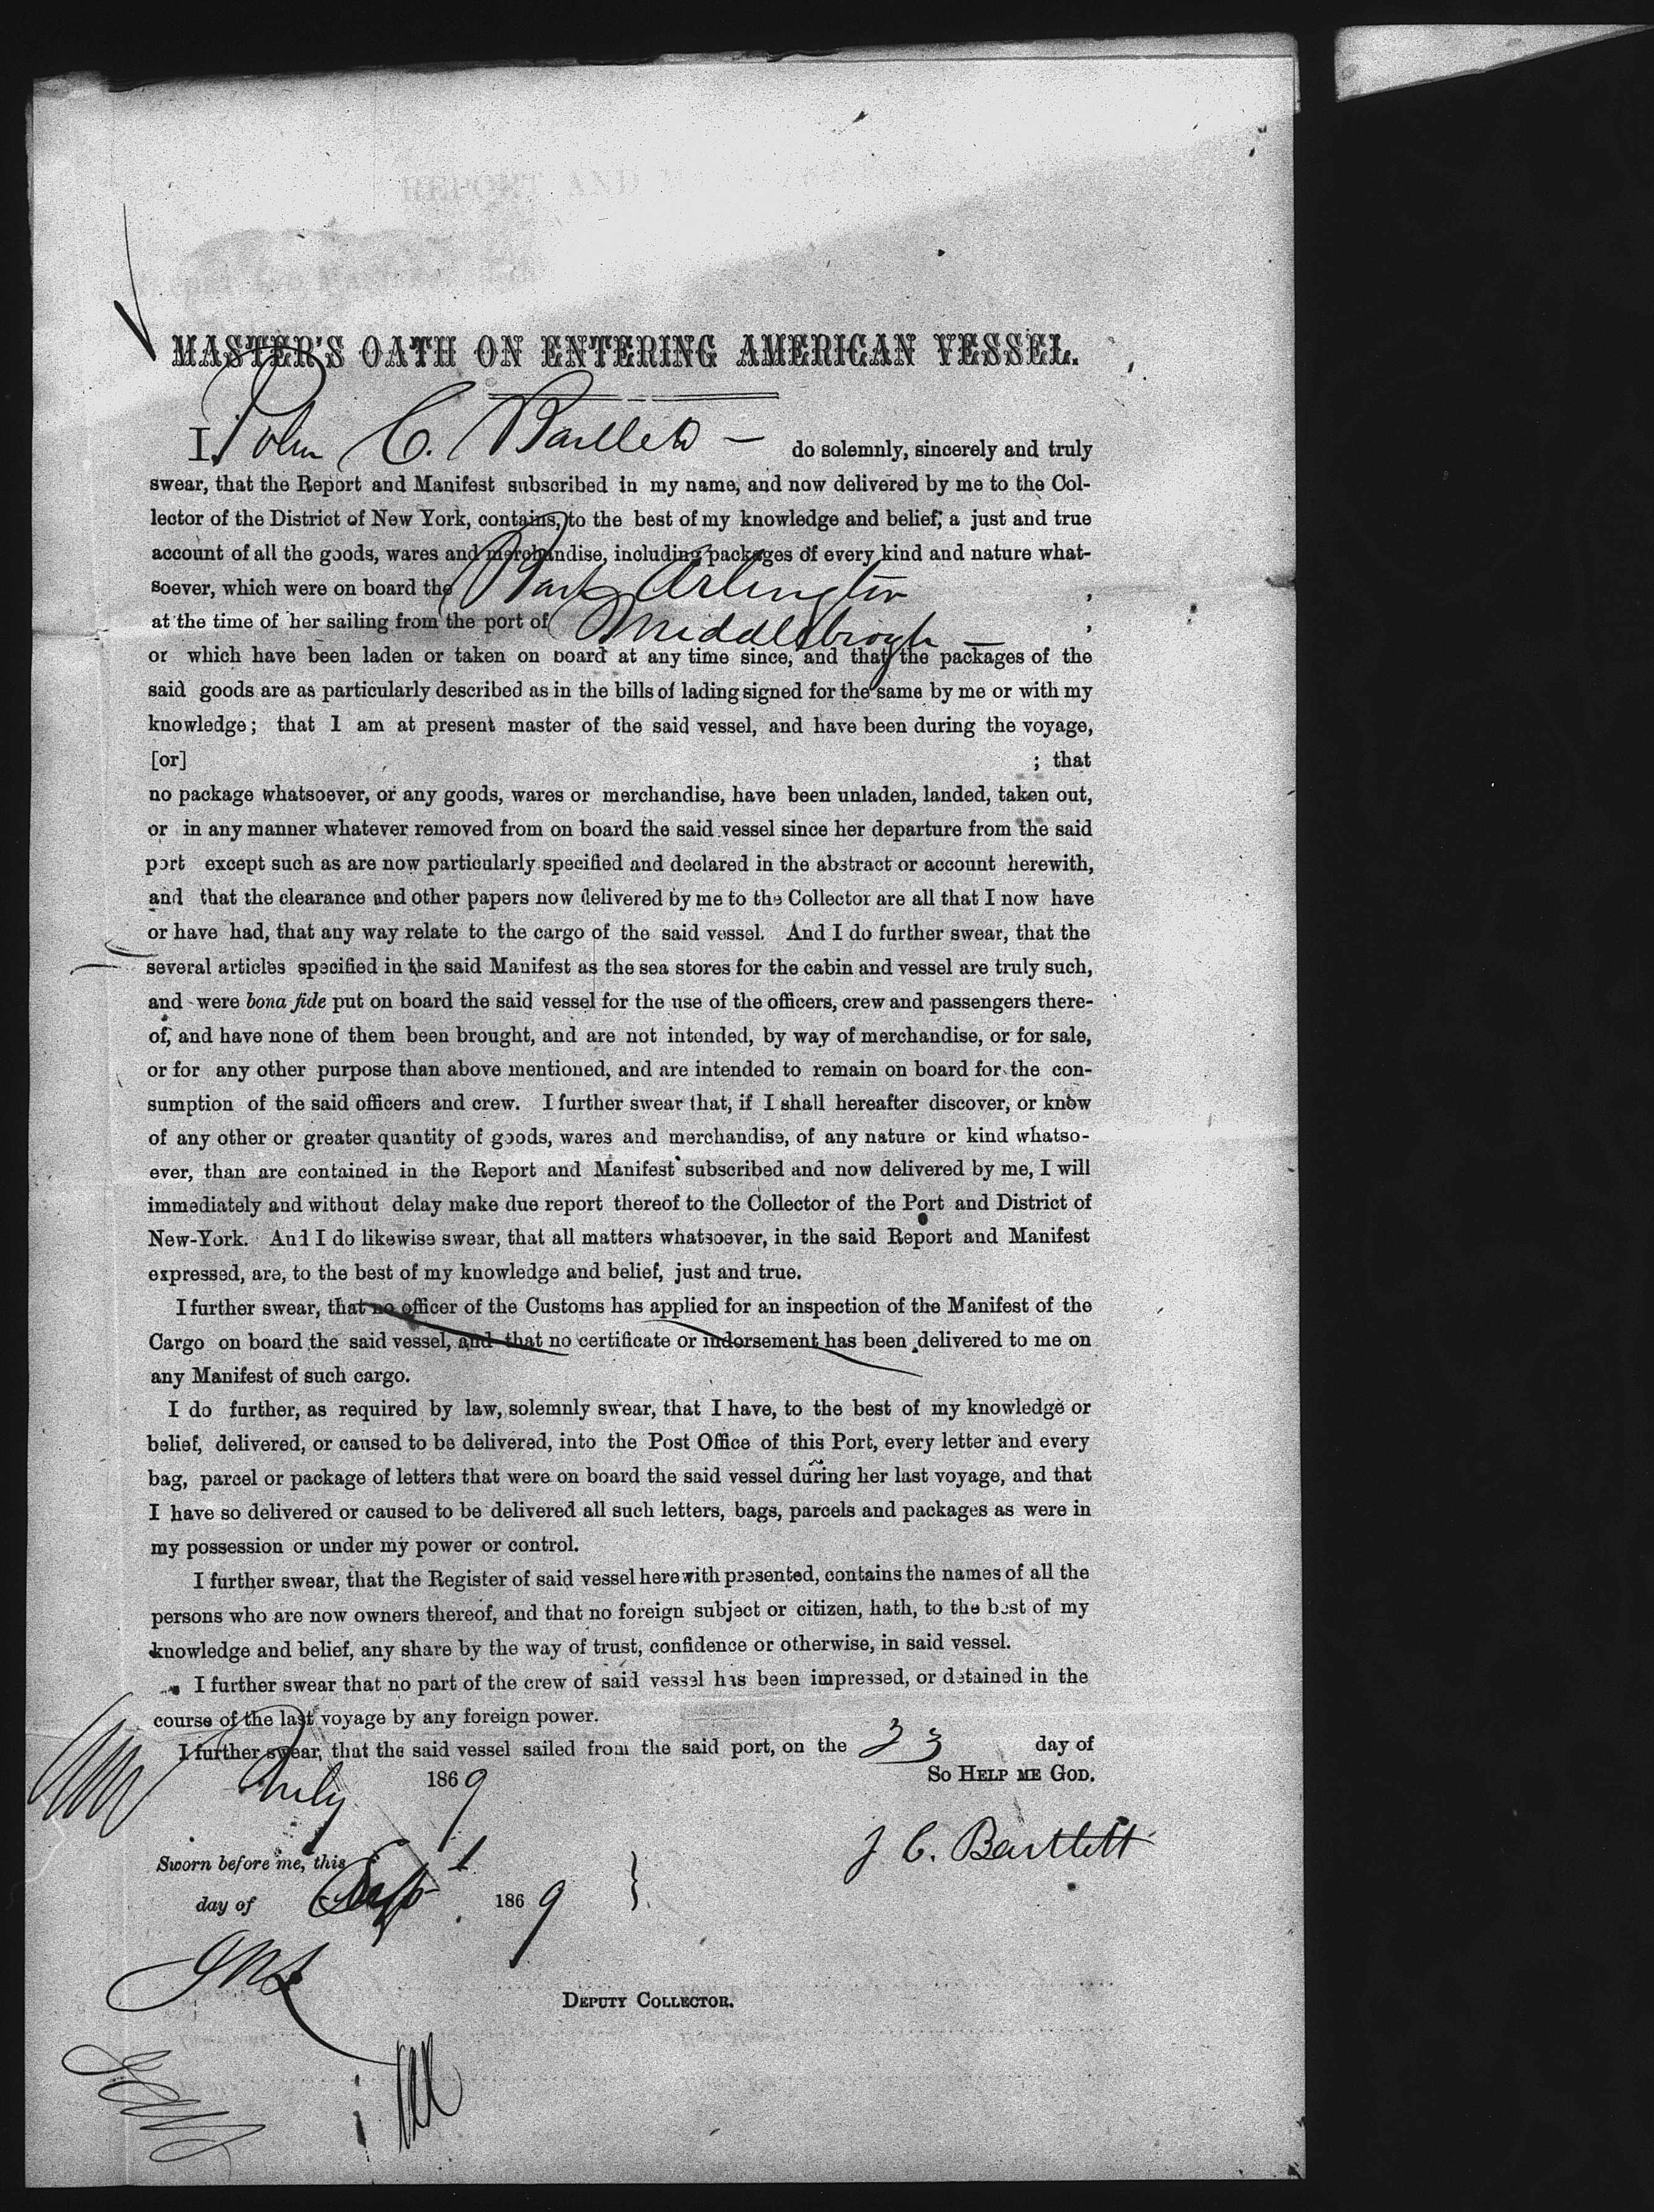 MASTER'S OATH ON ENTERING AMERICAN VESSEL.
I, John C. Bartlett — do solemnly, sincerely and truly
swear, that the Report and Manifest subscribed in my name, and now delivered by me to the Col-
lector of the District of New York, contains, to the best of my knowledge and belief, a just and true
account of all the goods, wares and merchandise, including packages of every kind and nature what-
soever, which were on board the Bark Arlington ,
at the time of her sailing from the port of Middlesbrough — ,
or which have been laden or taken on board at any time since, and that the packages of the
said goods are as particularly described as in the bills of lading signed for the same by me or with my
knowledge; that I am at present master of the said vessel, and have been during the voyage,
[or] ; that
no package whatsoever, or any goods, wares or merchandise, have been unladen, landed, taken out,
or in any manner whatever removed from on board the said vessel since her departure from the said
port except such as are now particularly specified and declared in the abstract or account herewith,
and that the clearance and other papers now delivered by me to the Collector are all that I now have
or have had, that any way relate to the cargo of the said vessel. And I do further swear, that the
several articles specified in the said Manifest as the sea stores for the cabin and vessel are truly such,
and were bona fide put on board the said vessel for the use of the officers, crew and passengers there-
of, and have none of them been brought, and are not intended, by way of merchandise, or for sale,
or for any other purpose than above mentioned, and are intended to remain on board for the con-
sumption of the said officers and crew. I further swear that, if I shall hereafter discover, or know
of any other or greater quantity of goods, wares and merchandise, of any nature or kind whatso-
ever, than are contained in the Report and Manifest subscribed and now delivered by me, I will
immediately and without delay make due report thereof to the Collector of the Port and District of
New-York. And I do likewise swear, that all matters whatsoever, in the said Report and Manifest
expressed, are, to the best of my knowledge and belief, just and true.
I further swear, that no officer of the Customs has applied for an inspection of the Manifest of the
Cargo on board the said vessel, and that no certificate or indorsement has been delivered to me on
any Manifest of such cargo.
I do further, as required by law, solemnly swear, that I have, to the best of my knowledge or
belief, delivered, or caused to be delivered, into the Post Office of this Port, every letter and every
bag, parcel or package of letters that were on board the said vessel during her last voyage, and that
I have so delivered or caused to be delivered all such letters, bags, parcels and packages as were in
my possession or under my power or control.
I further swear, that the Register of said vessel herewith presented, contains the names of all the
persons who are now owners thereof, and that no foreign subject or citizen, hath, to the best of my
knowledge and belief, any share by the way of trust, confidence or otherwise, in said vessel.
I further swear that no part of the crew of said vessel has been impressed, or detained in the
course of the last voyage by any foreign power.
I further swear, that the said vessel sailed from the said port, on the 23 day of
July 1869 SO HELP ME GOD.
J C. Bartlett
Sworn before me, this 1
day of Sept 1869
DEPUTY COLLECTOR.